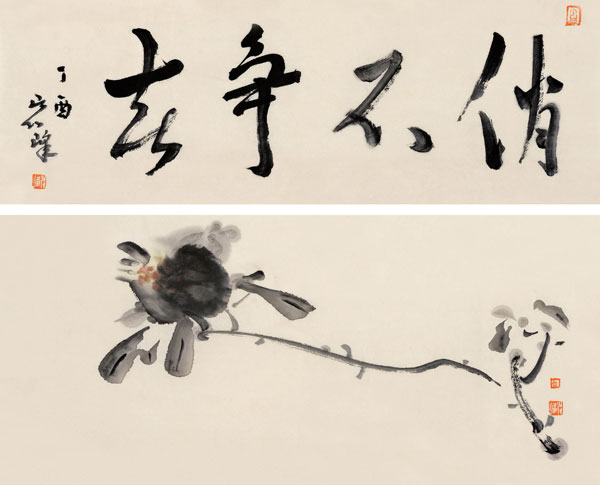 俏不争春
丁酉